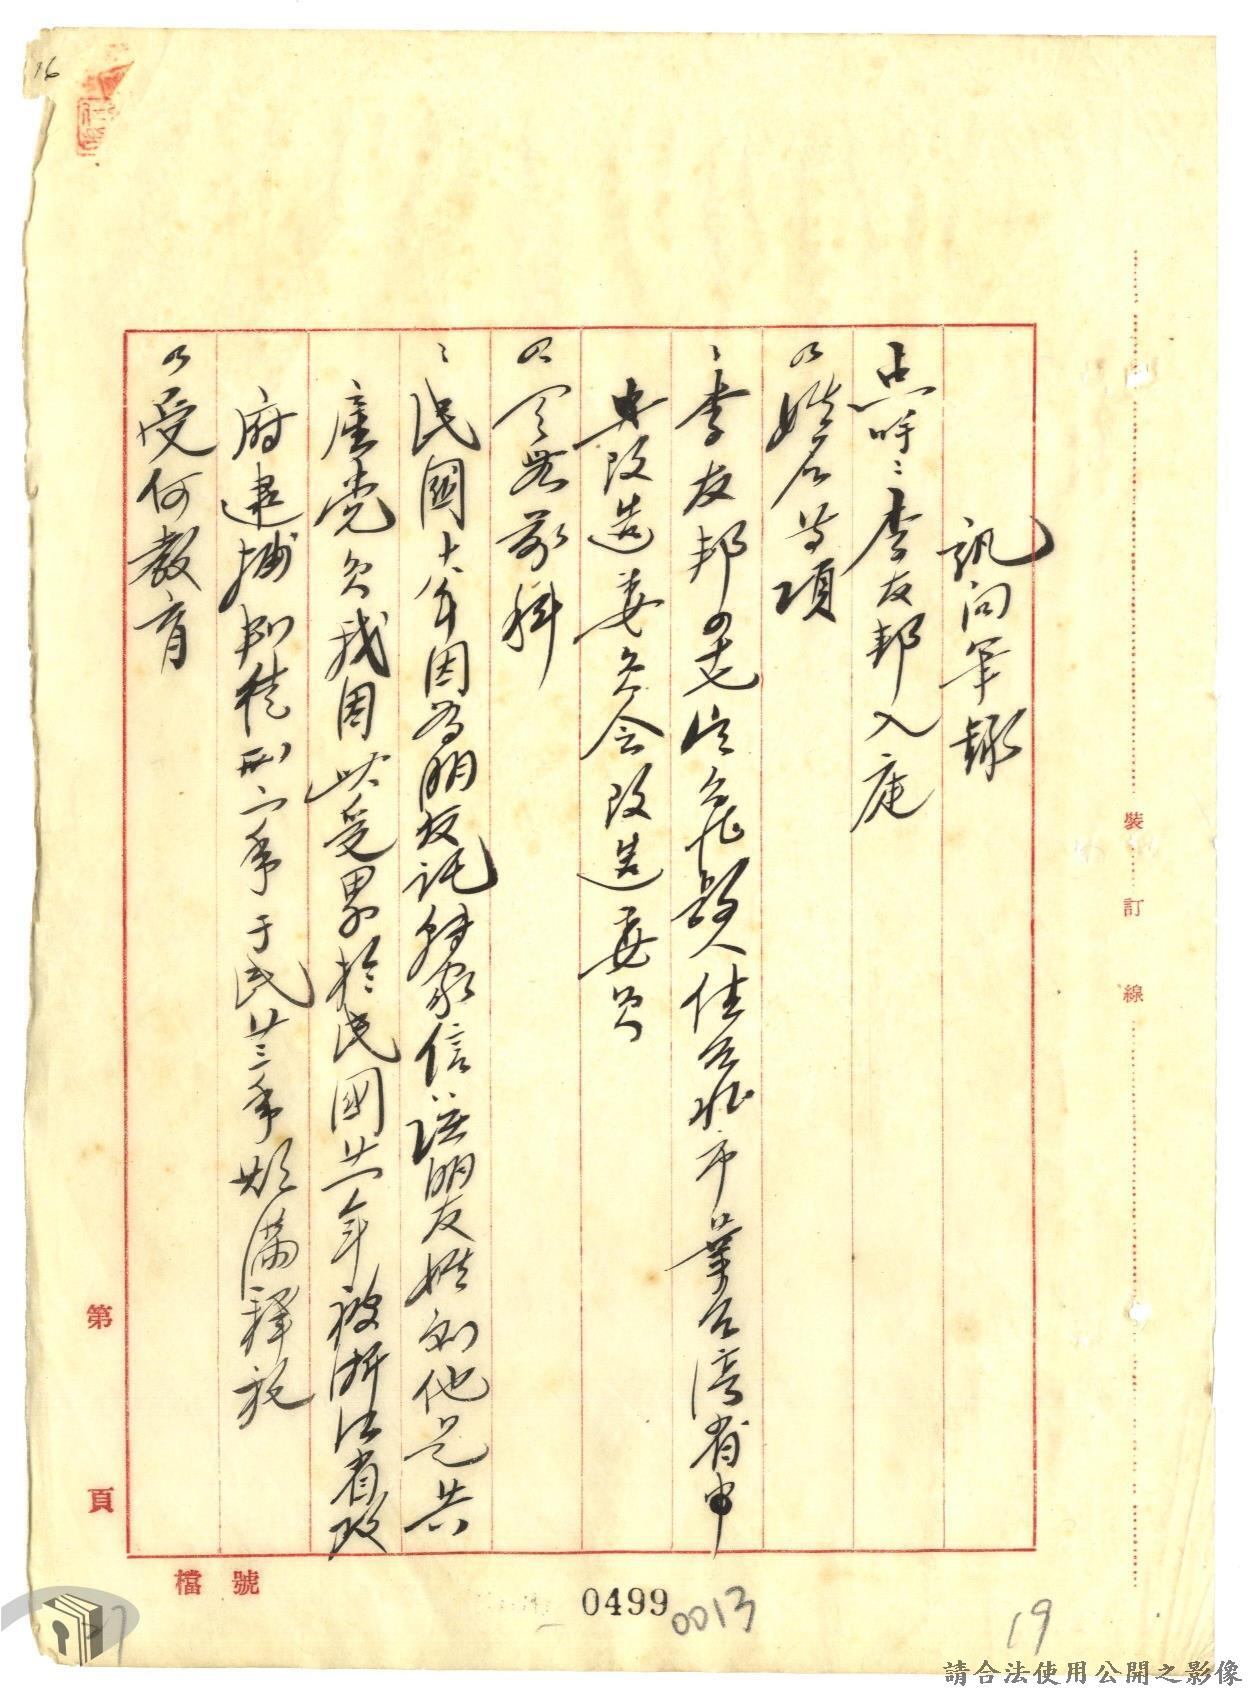 訊问筆錄
点呼:李友邦入庭
姓名等項
李友邦 四七 台北縣人住台北市 業台湾省
改造委員会改造委員
有無前科
民國十八年因为朋友託轉家信 該朋友姓劉他是共
產党員我因此受累於民國廿一年被浙江省政
府逮捕判徒刑二年于民廿三年期满釋放
受何教育
裝 訂 線
第 頁
檔 號
0499
0013
19
16
請合法使用公開之影像